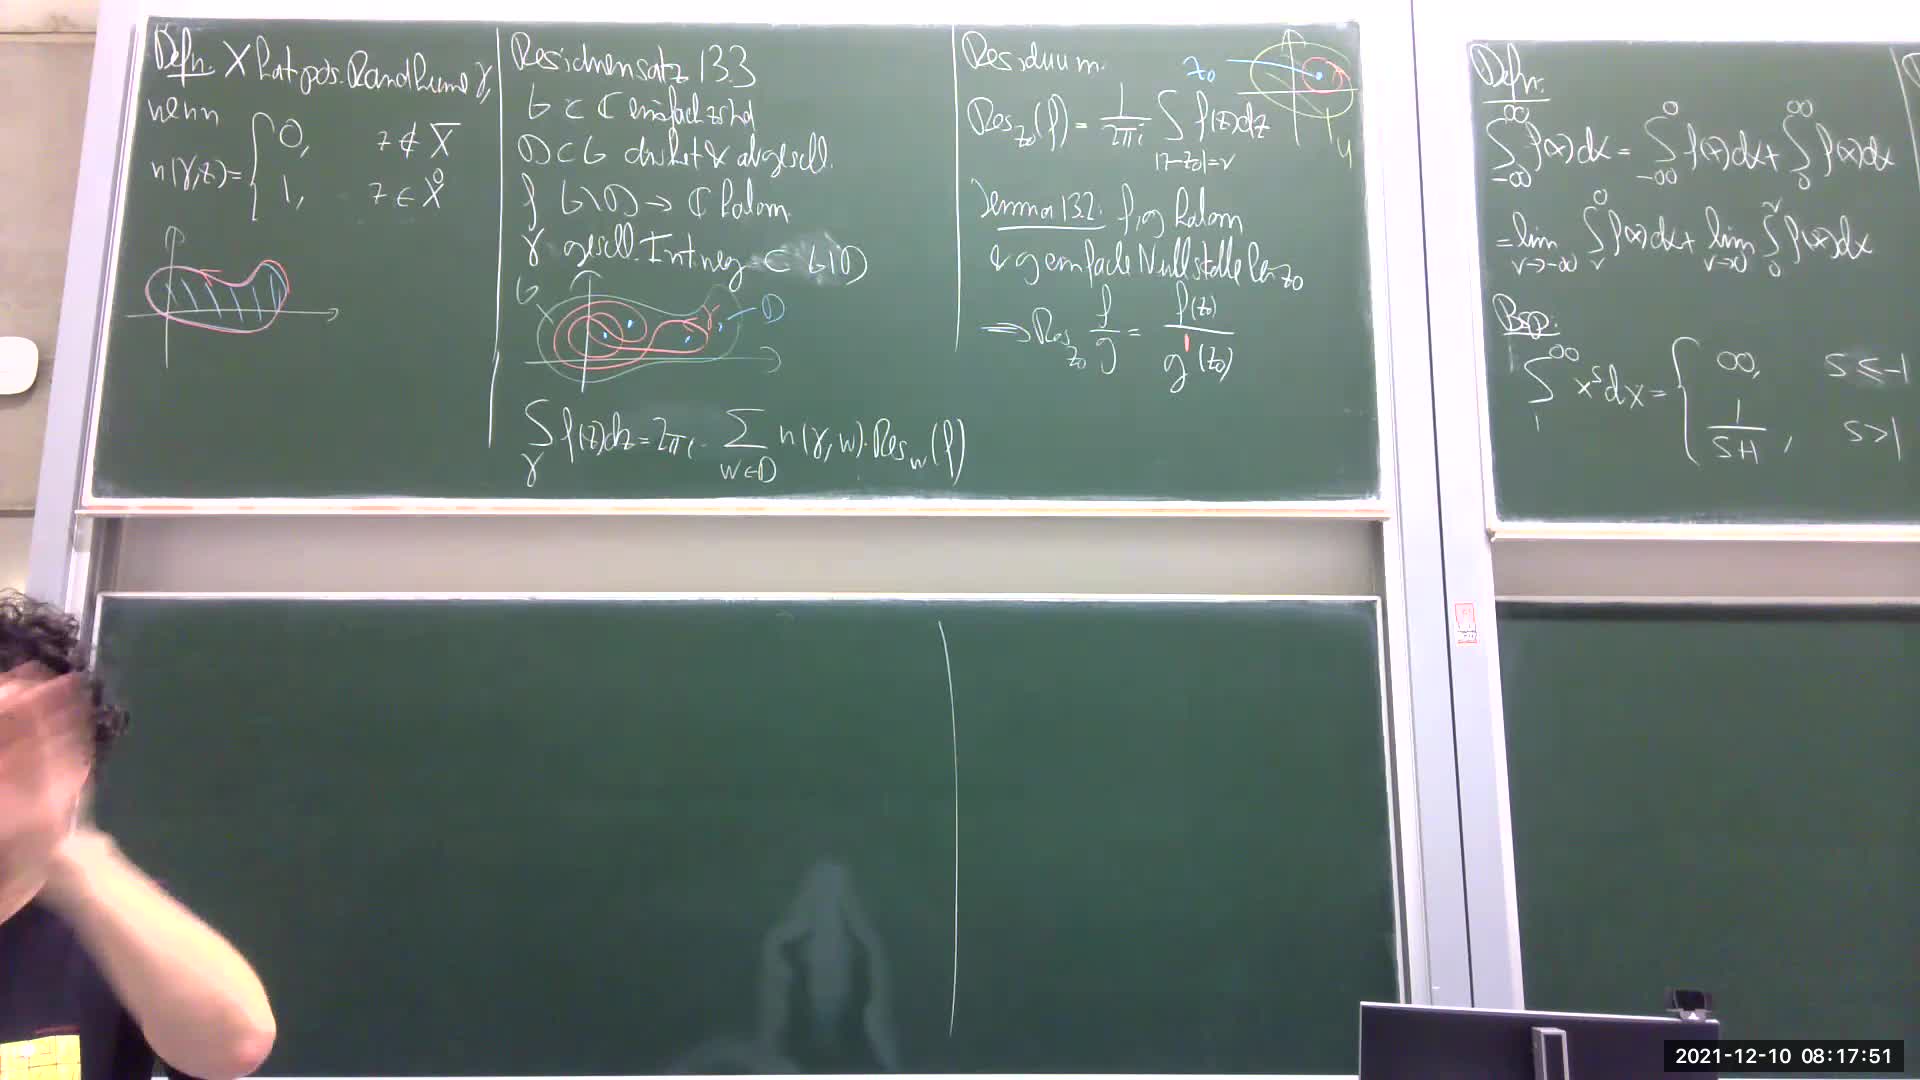 Defn. X hat pos. Randkurve γ,
wenn
n(γ,z) = { 0, z ∉ X̄
1, z ∈ X̊
Residuensatz 13.3
G ⊂ ℂ einfach zshgd
D ⊂ G diskret & abgeschl.
f: G\D → ℂ holom.
γ geschl. Int.weg ⊂ G\D
G
γ
D
∫_γ f(z)dz = 2πi · Σ_{w∈D} n(γ,w) · Res_w(f)
Residuum:
z₀
U
Res_{z₀}(f) = 1/(2πi) ∫_{|z-z₀|=r} f(z)dz
Lemma 13.2: f,g holom
& g einfache Nullstelle in z₀
⟹ Res_{z₀} f/g = f(z₀)/g'(z₀)
Defn.
∫_{-∞}^{∞} f(x)dx = ∫_{-∞}^{0} f(x)dx + ∫_{0}^{∞} f(x)dx
= lim_{r→-∞} ∫_{r}^{0} f(x)dx + lim_{r→∞} ∫_{0}^{r} f(x)dx
Bsp.
∫_{1}^{∞} x^s dx = { ∞, s ≤ -1
1/(s+1), s > 1
2021-12-10 08:17:51